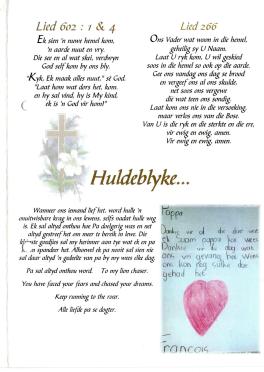 Lied 602 : 1 & 4
Ek sien 'n nuwe hemel kom,
'n aarde nuut en vry.
Die see en al wat skei, verdwyn
God self kom by ons bly.
"Kyk, Ek maak alles nuut," sê God.
"Laat hom wat dors het, kom.
en hy sal vind, hy is My kind.
ek is 'n God vir hom!"
Lied 266
Ons Vader wat woon in die hemel,
geheilig sy U Naam.
Laat U ryk kom. U wil geskied
soos in die hemel so ook op die aarde.
Gee ons vandag ons dag se brood
en vergeef ons al ons skulde,
net soos ons vergewe
die wat teen ons sondig.
Laat kom ons nie in die versoeking,
maar verlos ons van die Bose.
Van U is die ryk en die sterkte en die eer,
vir ewig en ewig, amen.
Vir ewig en ewig, amen.
Huldeblyke...
Wanneer ons iemand lief het, word hulle 'n
onuitwisbare kring in ons lewens, selfs nadat hulle weg
is. Ek sal altyd onthou hoe Pa doelgerig was en net
altyd gestreef het om meer te bereik in lewe. Die
goedjies sal my herinner aan tye wat ek en pa
aan spandeer het. Alhoewel ek pa nooit sal sien nie
sal daar altyd 'n gedeelte van pa by my wees elke dag.
Pa sal altyd onthou word. To my lion chaser.
You have faced your fears and chased your dreams.
Keep running to the roar.
Alle liefde pa se dogter.
Pappa
Dankie vir al die dae wat
ek saam pappa kon wees
Dankie vir die dag wat
ons vis gevang het. Wens
ons kon nog sulke dae
gehad het.
Francois